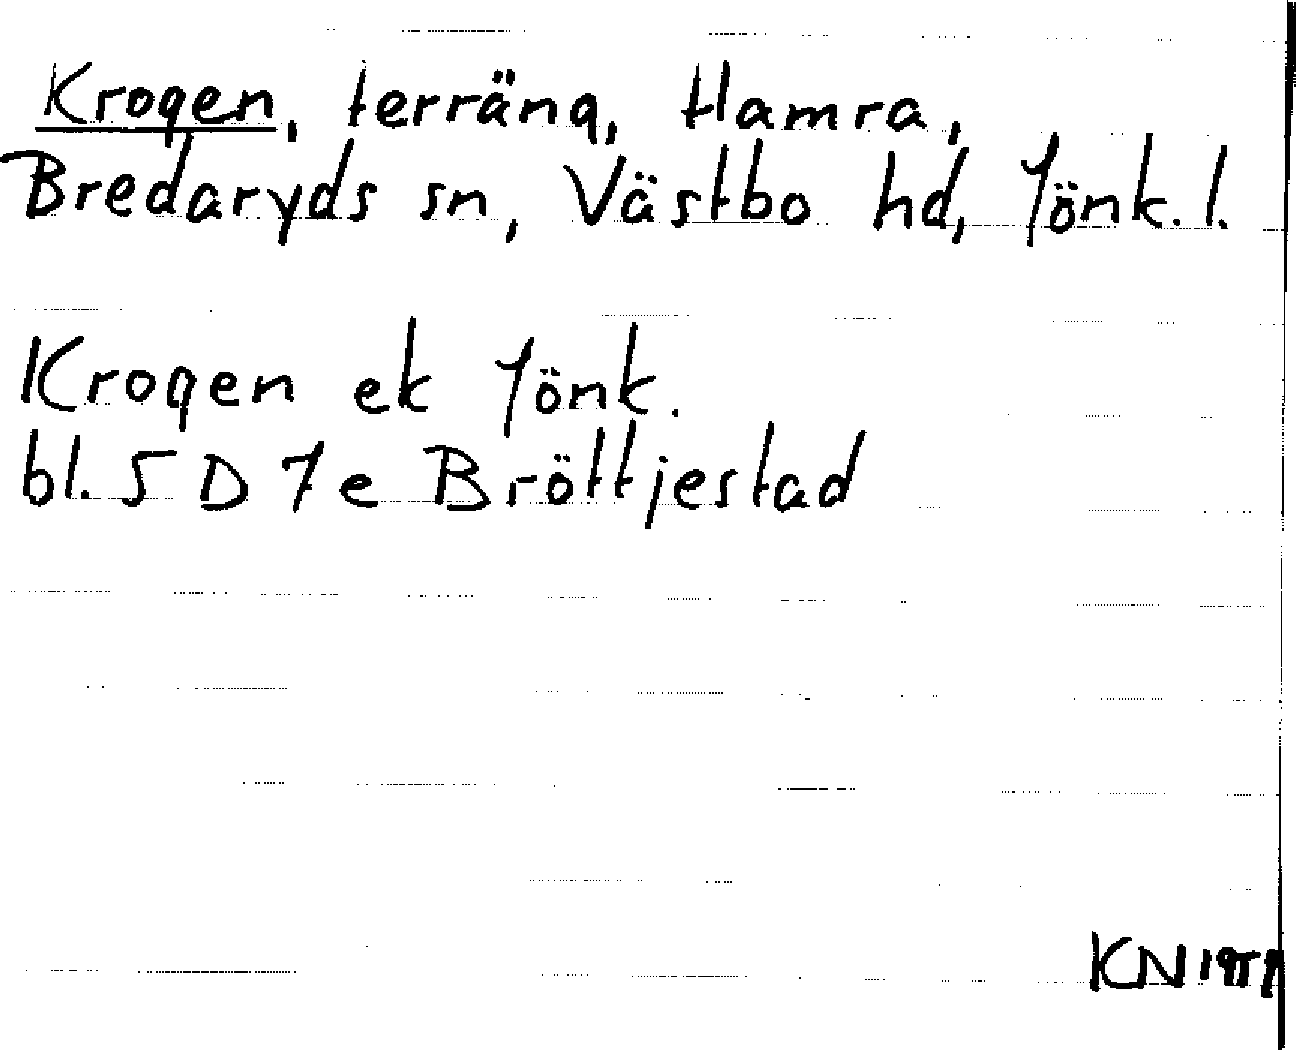 Krogen, terräng, Hamra,
Bredaryds sn, Västbo hd, Jönk. l.
Krogen ek Jönk.
bl. 5 D 7 e Bröttjestad
KN